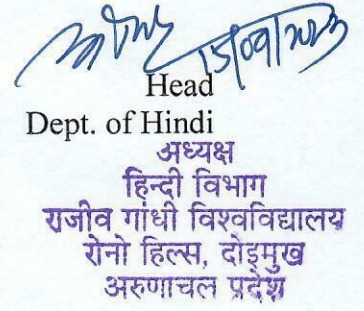 15/09/2023
Head
Dept. of Hindi
अध्यक्ष
हिन्दी विभाग
राजीव गांधी विश्वविद्यालय
रोनो हिल्स, दोइमुख
अरुणाचल प्रदेश